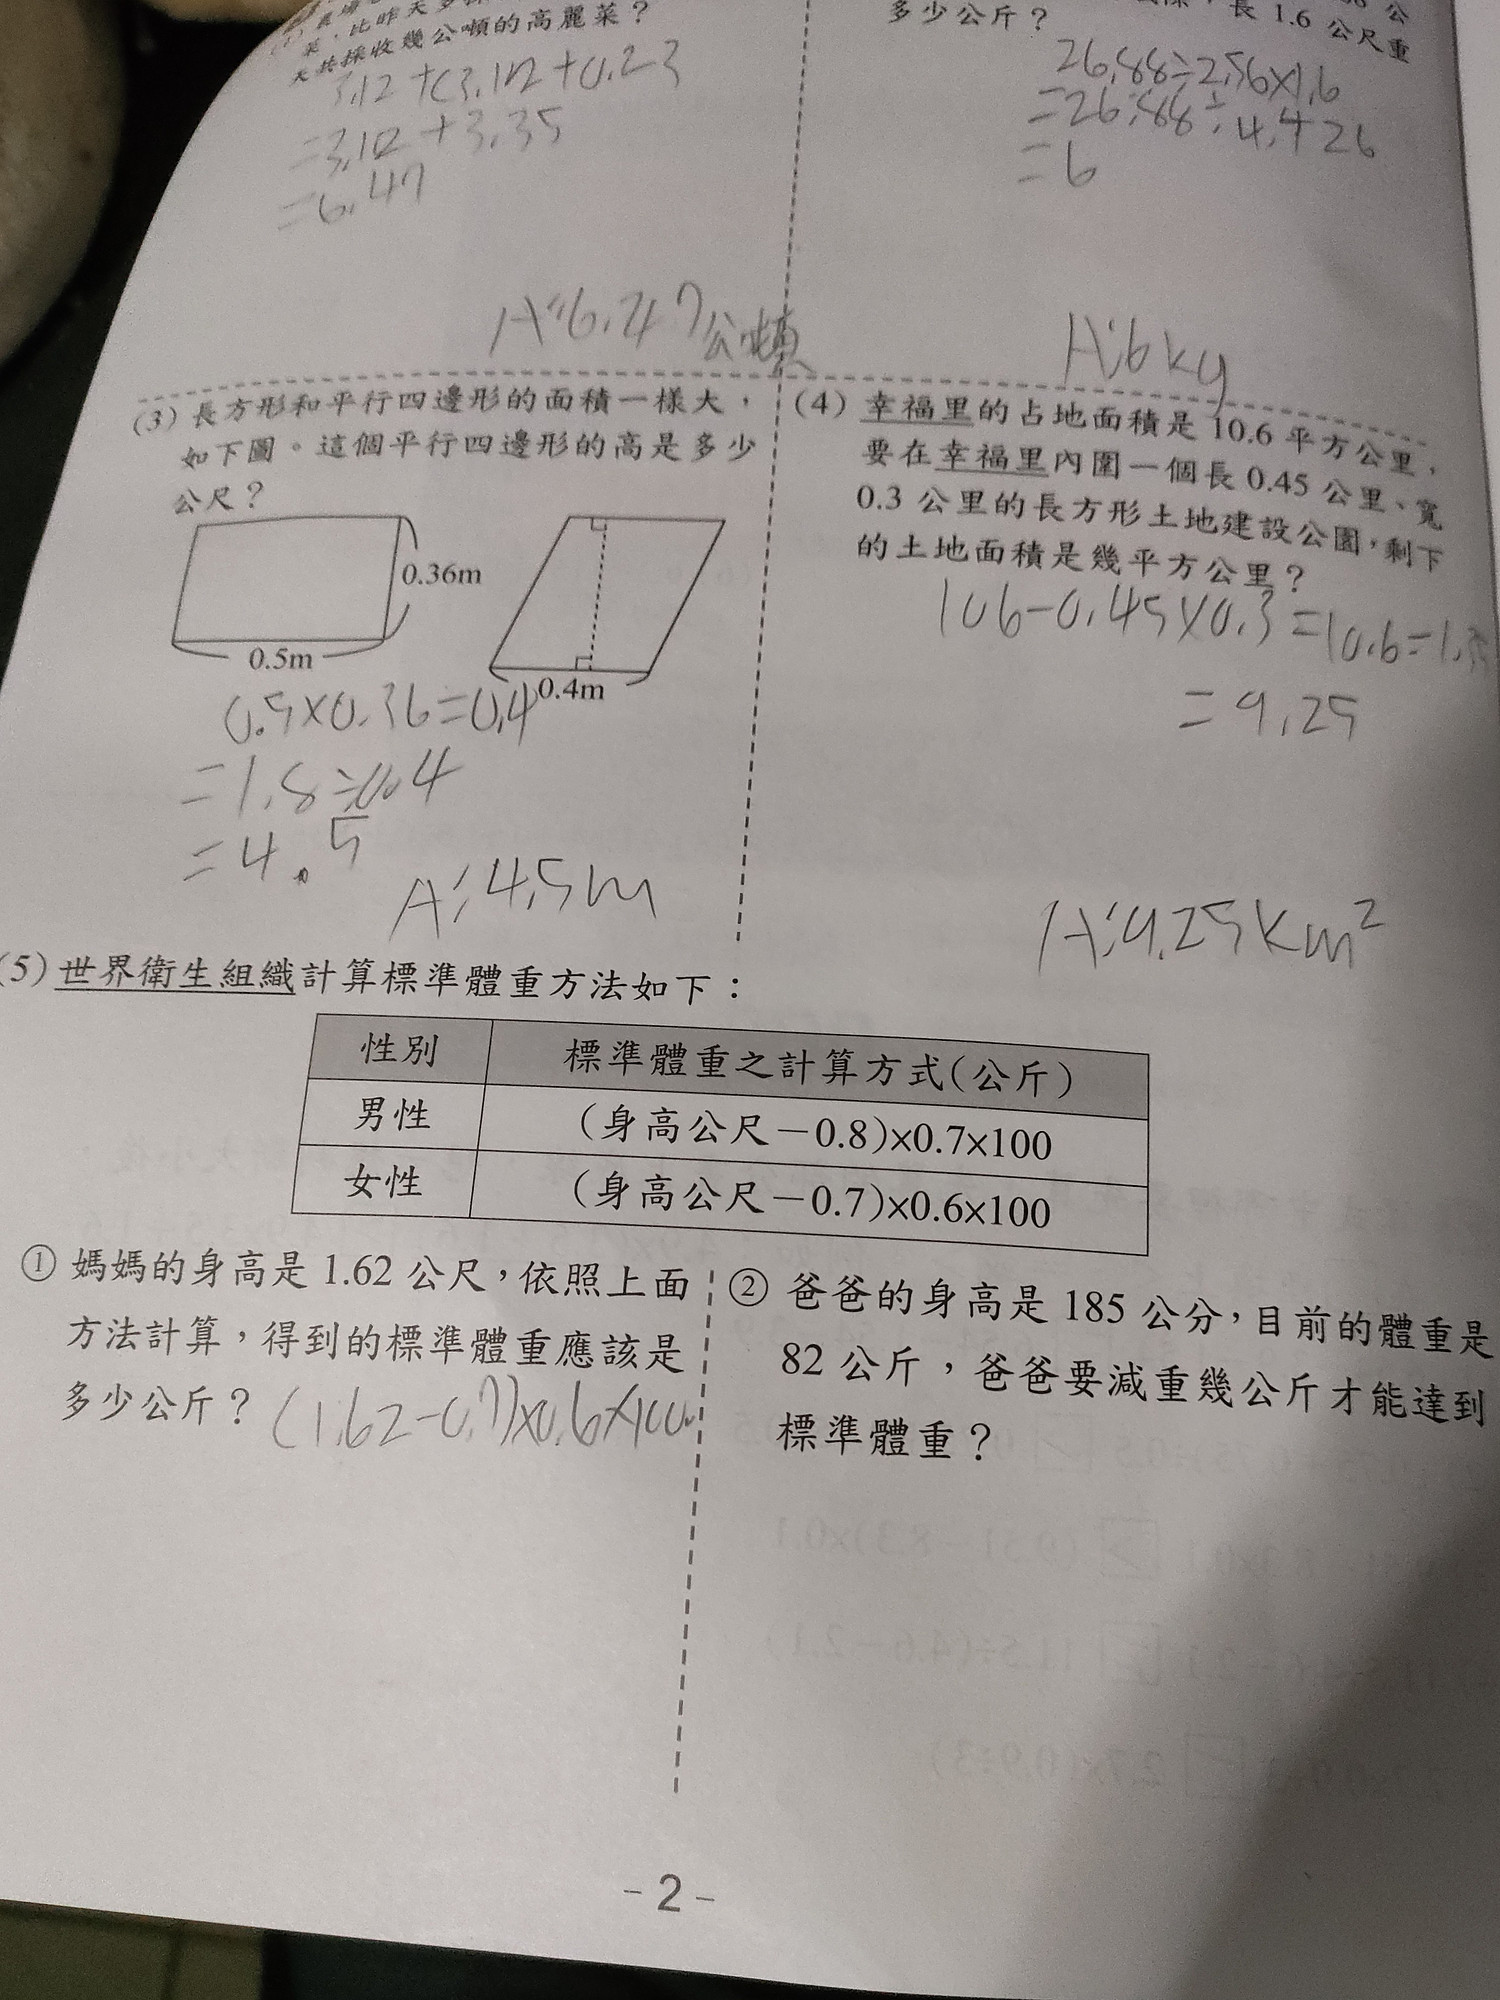 菜，比昨天多採
天共採收幾公噸的高麗菜？
3.12+(3.12+0.23
=3.12+3.35
=6.47
A:6.47公噸
多少公斤？
長 1.6 公尺重
26.88÷2.56×1.6
=26.88÷4.426
=6
A:6kg
(3) 長方形和平行四邊形的面積一樣大，
如下圖。這個平行四邊形的高是多少
公尺？
0.36m
0.5m
0.4m
0.5×0.36=0.4
=1.8÷0.4
=4.5
A:4.5m
(4) 幸福里的占地面積是 10.6 平方公里，
要在幸福里內圍一個長 0.45 公里、寬
0.3 公里的長方形土地建設公園，剩下
的土地面積是幾平方公里？
106-0.45×0.3=10.6=1.35
=9.25
A:9.25km²
(5) 世界衛生組織計算標準體重方法如下：
性別 標準體重之計算方式(公斤)
男性 (身高公尺－0.8)×0.7×100
女性 (身高公尺－0.7)×0.6×100
① 媽媽的身高是 1.62 公尺，依照上面
方法計算，得到的標準體重應該是
多少公斤？
(1.62-0.7)×0.6×100
② 爸爸的身高是 185 公分，目前的體重是
82 公斤，爸爸要減重幾公斤才能達到
標準體重？
-2-